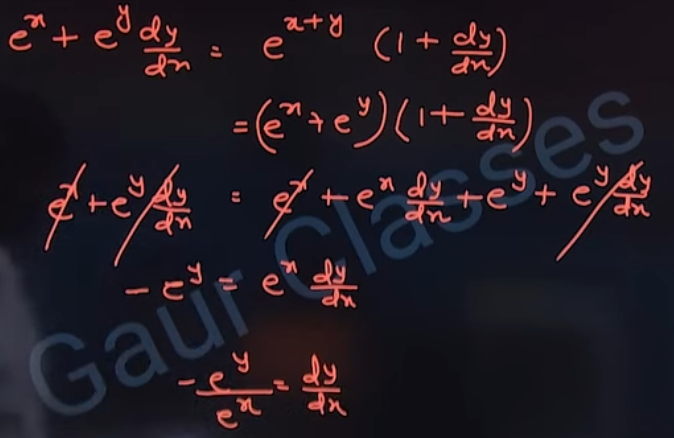 e^x + e^y dy/dx = e^{x+y} (1 + dy/dx)
= (e^x + e^y)(1 + dy/dx)
e^x + e^y dy/dx = e^x + e^x dy/dx + e^y + e^y dy/dx
- e^y = e^x dy/dx
- e^y/e^x = dy/dx
Gaur Classes